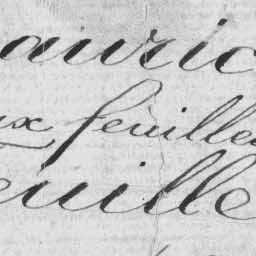 auric
ux feuille
euille